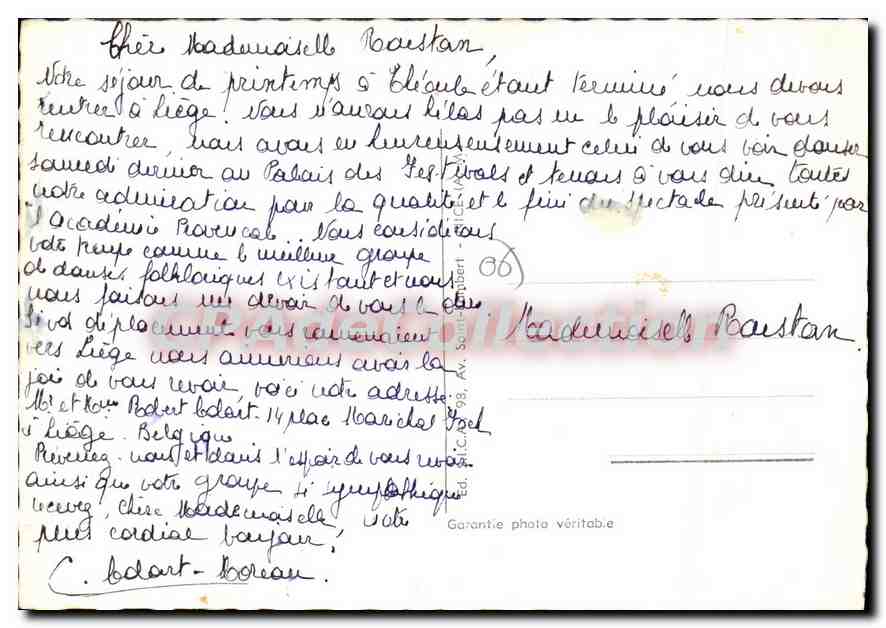 Chère Mademoiselle Roestan,
Notre séjour de printemps à Théoule étant terminé nous devons
rentrer à Liège. Nous n'aurons hélas pas eu le plaisir de vous
rencontrer, nous avons eu heureusensement celui de vous voir danser
samedi dernier au Palais des Festivals et tenons à vous dire toute
notre admiration pour la qualité et le fini du spectacle présenté par
l'académie Provencale. Nous considérons
votre troupe comme le meilleur groupe
de danses folkloriques existant et nous
nous faisons un devoir de vous le dire
Si vos déplacements vous amenaient
vers Liège nous aimerions avoir la
joie de vous revoir, voici notre adresse.
Mr et Mme Robert Colart - 14 place Maréchal Foch
à Liège. Belgique
Prévenez-nous et dans l'espoir de vous revoir
ainsi que votre groupe si sympathique
recevez, chère Mademoiselle, notre
plus cordial bonjour!
C. Colart-Moreau.
06
Mademoiselle Roestan.
Av. Saint-Lambert - NICE (A.-M.)
Garantie photo véritable
CPA collection